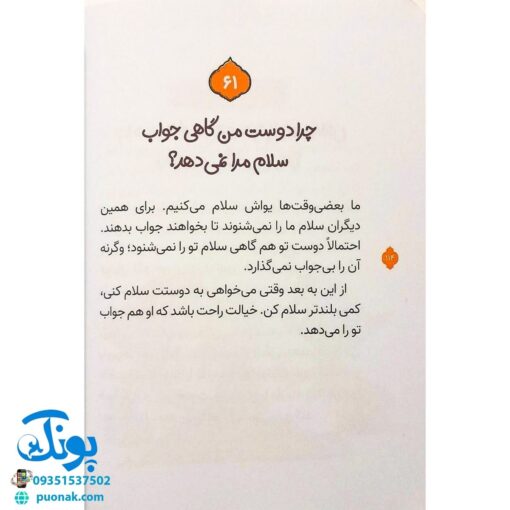 ۶۱
چرا دوست من گاهی جواب
سلام مرا نمی‌دهد؟
ما بعضی‌وقت‌ها یواش سلام می‌کنیم. برای همین
دیگران سلام ما را نمی‌شنوند تا بخواهند جواب بدهند.
احتمالاً دوست تو هم گاهی سلام تو را نمی‌شنود؛ وگرنه
آن را بی‌جواب نمی‌گذارد.
از این به بعد وقتی می‌خواهی به دوستت سلام کنی،
کمی بلندتر سلام کن. خیالت راحت باشد که او هم جواب
تو را می‌دهد.
۱۱۴
پونک
09351537502
puonak.com